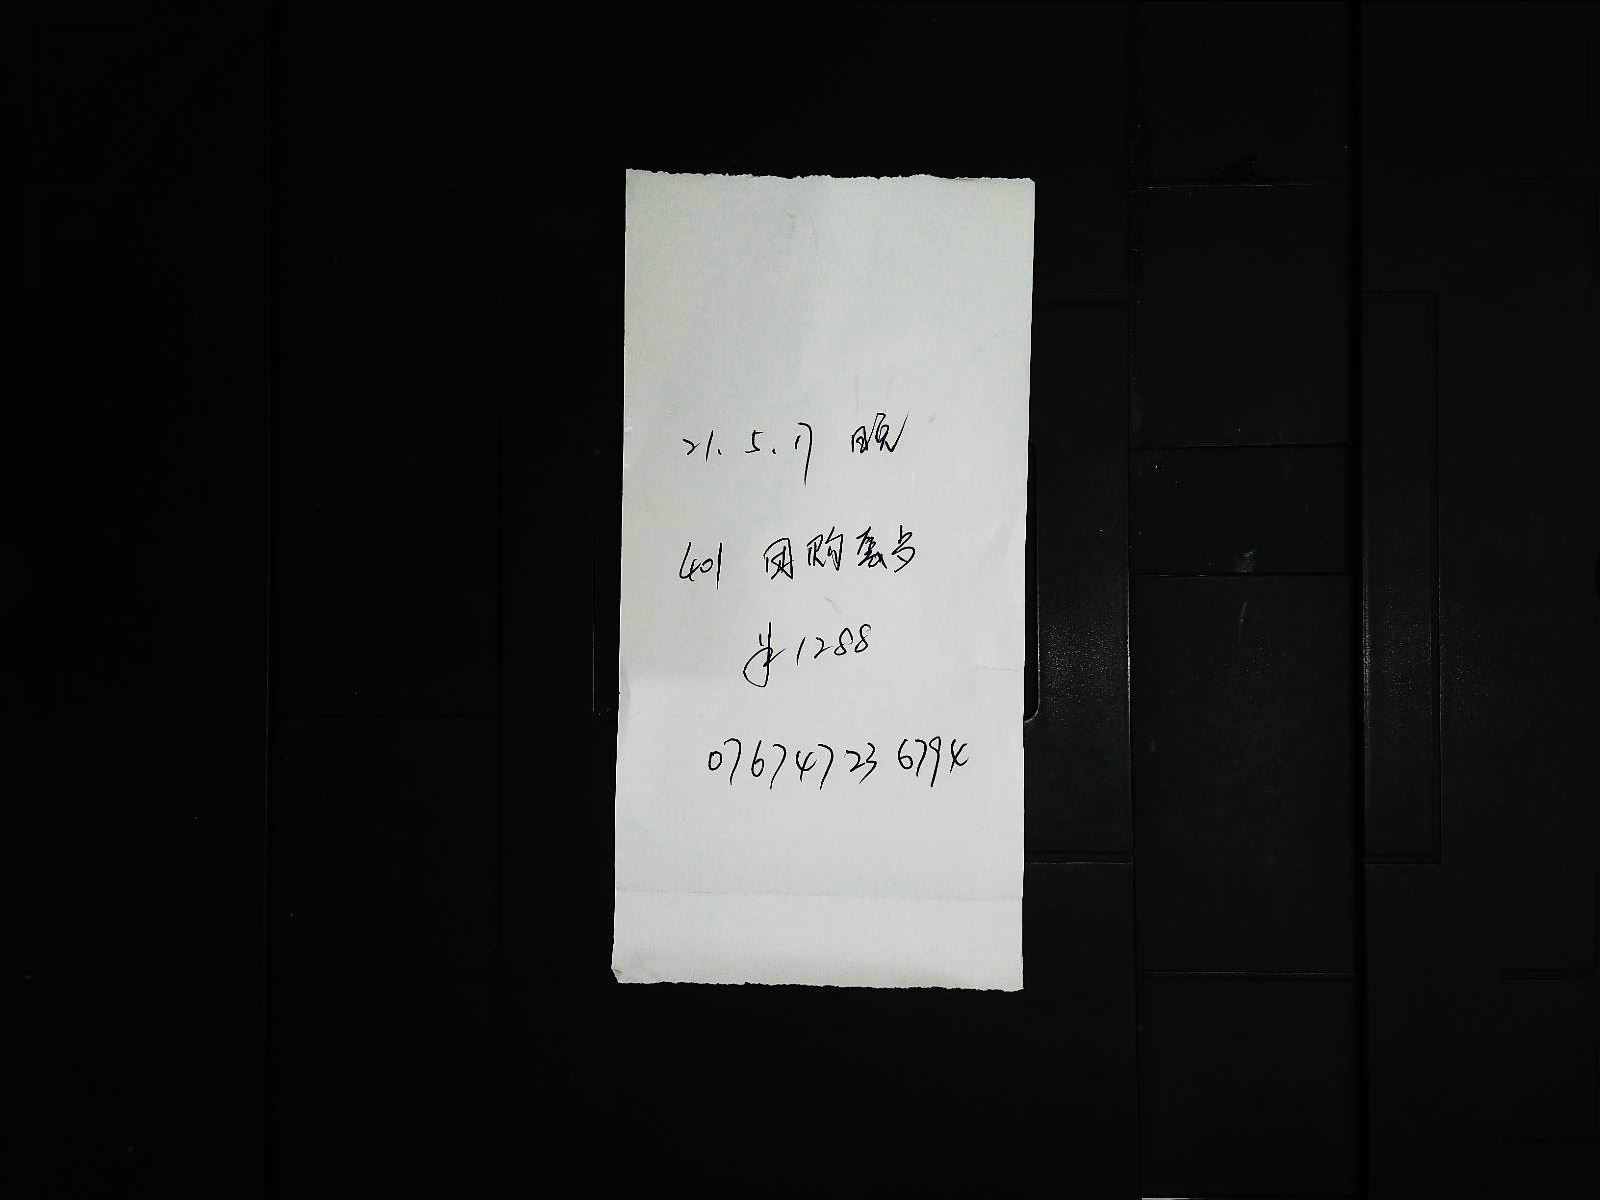 21.5.17 晚
401 团购套步
半1288
076747236794